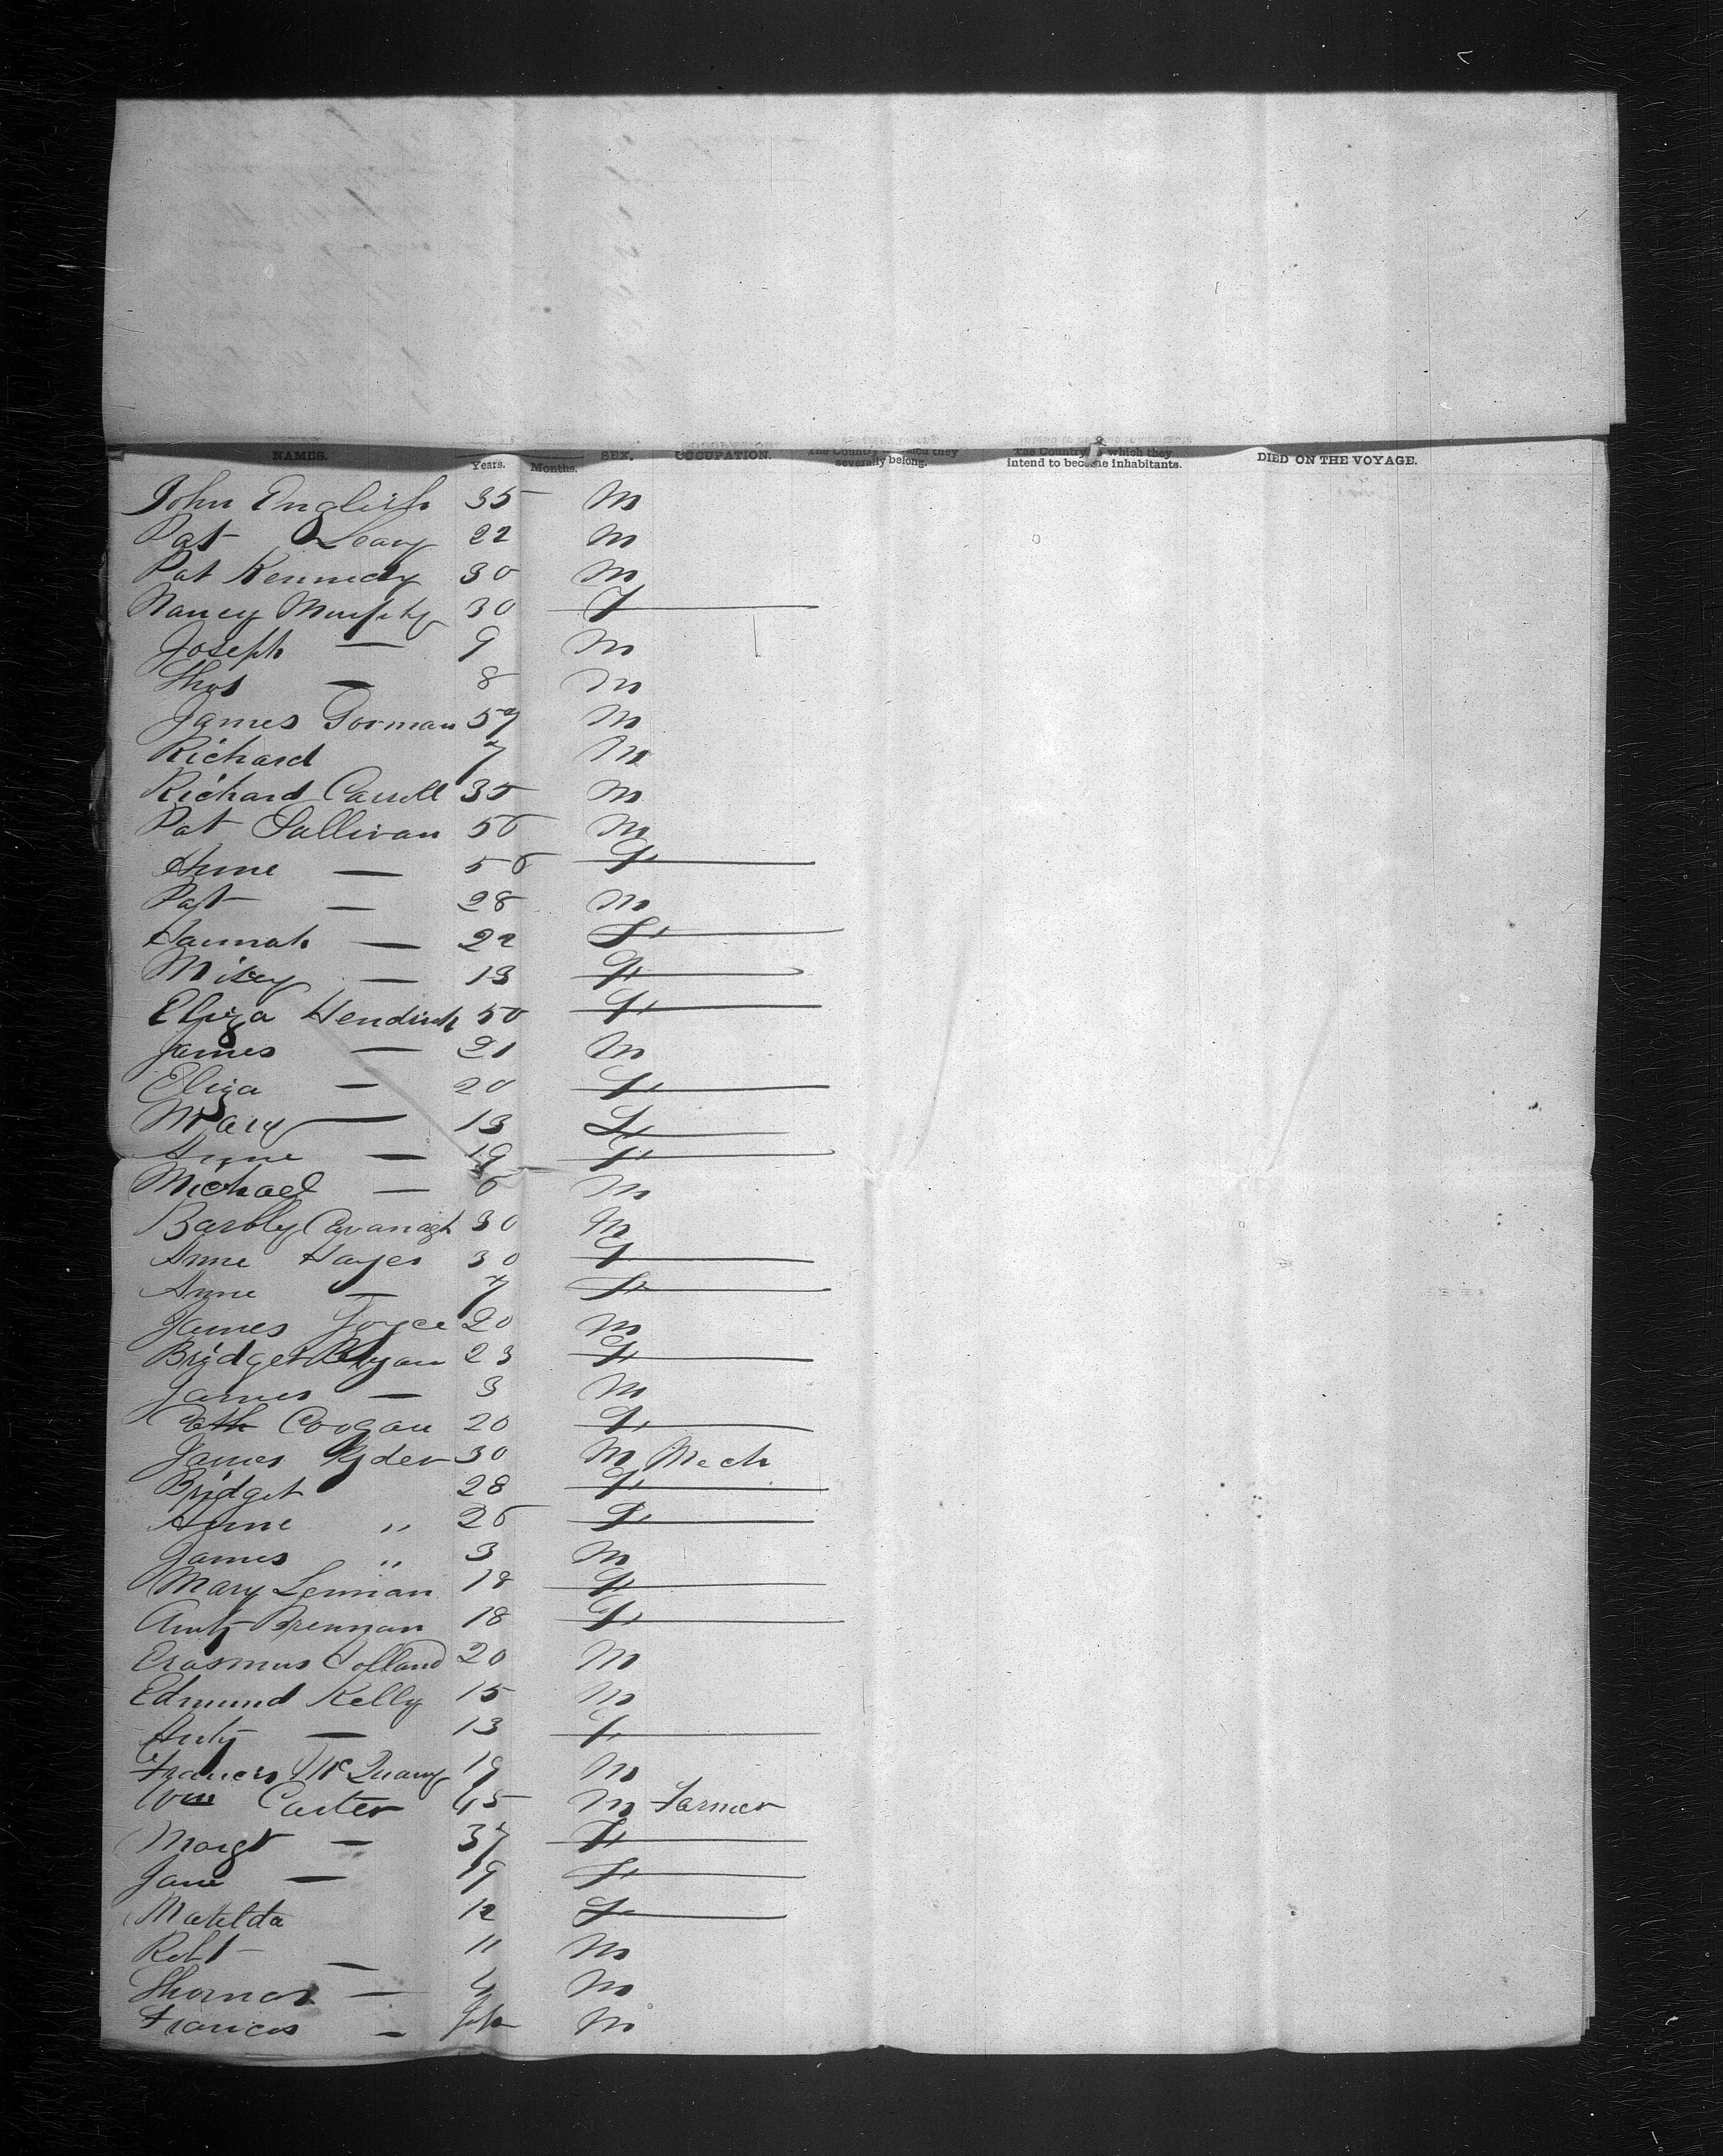 NAMES. Years. Months. SEX. OCCUPATION. The Country which they severally belong. The Country which they intend to become inhabitants. DIED ON THE VOYAGE.
John English 35 M
Pat Leary 22 M
Pat Kennedy 30 M
Nancy Murphy 30 F
Joseph — 9 M
Thos — 8 M
James Gorman 57 M
Richard 7 M
Richard Carroll 35 M
Pat Sullivan 56 M
Anne — 56 F
Pat — 28 M
Hannah — 22 F
— 13 F
Eliza Hendrick 50 F
James — 21 M
Eliza — 20 F
Mary — 13 F
Anne — 19 F
Michael — 6 M
Cavanagh 30 M
Anne Hayes 30 F
Anne — 7 F
James Joyce 20 M
Bridget Ryan 23 F
James — 3 M
Coogan 20 F
James Ryder 30 M Mech
Bridget 28 F
Anne " 26 F
James " 3 M
Mary Lennan 18 F
Brennan 18 F
Erasmus Holland 20 M
Edmund Kelly 15 M
— 13 F
Francis 19 M
Wm Carter 45 M Farmer
Margt — 37 F
Jane — 19 F
Matilda 12 F
Robt — 11 M
Thomas — 4 M
Frances — Inf M